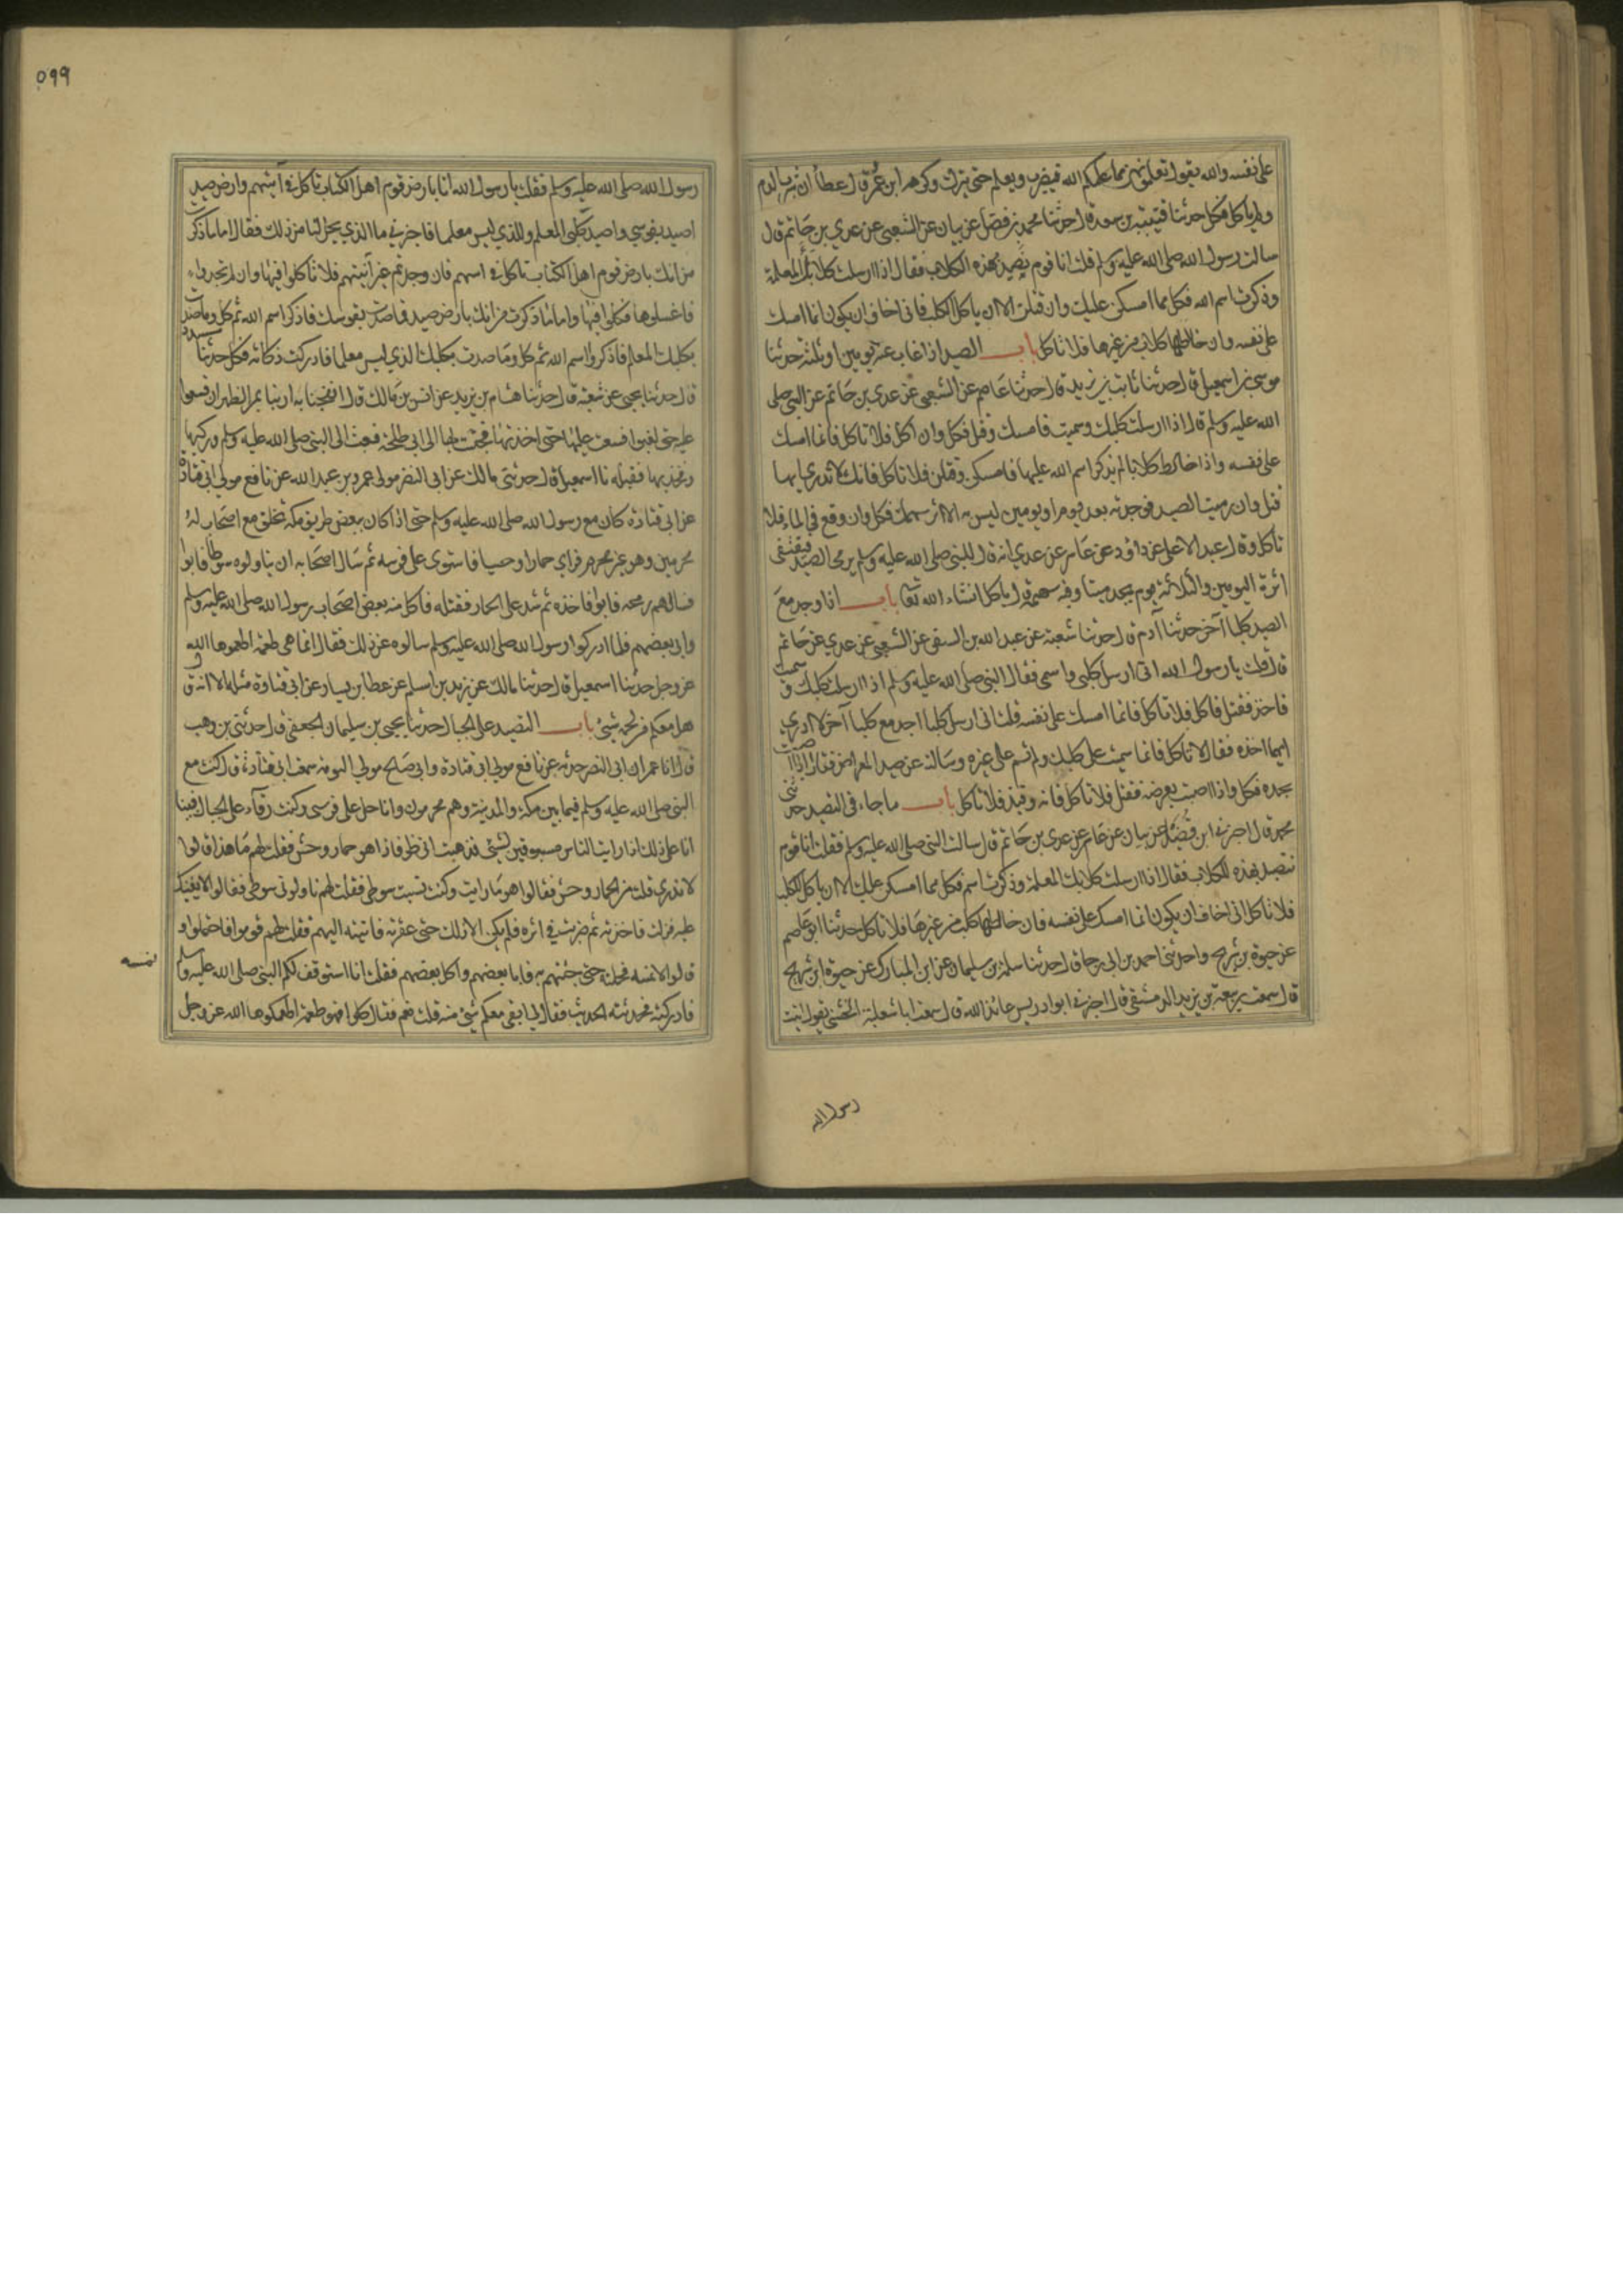 على نفسه والله يقول تعلمونهن مما علمكم الله فيضرب ويعلم حتى يترك وكرهه ابن عمر وقال عطاء ان شرب الدم
ولم ياكل فكل حدثنا قتيبة بن سعيد قال حدثنا محمد بن فضيل عن بيان عن الشعبي عن عدي بن حاتم قال
سالت رسول الله صلى الله عليه وسلم قلت انا قوم نصيد بهذه الكلاب فقال اذا ارسلت كلابك المعلمة
وذكرت اسم الله فكل مما امسكن عليك وان قتلن الا ان ياكل الكلب فاني اخاف ان يكون انما امسك
على نفسه وان خالطها كلاب من غيرها فلا تاكل باب الصيد اذا غاب عنه يومين او ثلثة حدثنا
موسى بن اسمعيل قال حدثنا ثابت بن يزيد قال حدثنا عاصم عن الشعبي عن عدي بن حاتم عن النبي صلى
الله عليه وسلم قال اذا ارسلت كلبك وسميت فامسك وقتل فكل وان اكل فلا تاكل فانما امسك
على نفسه واذا خالط كلابا لم يذكر اسم الله عليها فامسكن وقتلن فلا تاكل فانك لا تدري ايها
قتل وان رميت الصيد فوجدته بعد يوم او يومين ليس به الا اثر سهمك فكل وان وقع في الماء فلا
تاكل وقال عبد الاعلى عن داود عن عامر عن عدي انه قال للنبي صلى الله عليه وسلم يرمي الصيد فيقتفى
اثره اليومين والثلاثة يوم يجده ميتا وفيه سهمه قال ياكل انشاء الله تعا باب اذا وجد مع
الصيد كلبا آخر حدثنا آدم قال حدثنا شعبة عن عبد الله بن السفر عن الشعبي عن عدي عن حاتم
قال قلت يا رسول الله اني ارسل كلبي واسمي فقال النبي صلى الله عليه وسلم اذا ارسلت كلبك وسميت
فاخذ فقتل فاكل فلا تاكل فانما امسك على نفسه قلت اني ارسل كلبا اجد مع كلبا آخر لا ادري
ايهما اخذه فقال لا تاكل فانما سميت على كلبك ولم تسم على غيره وسالته عن صيد المعراض فقال اذا اصبت
بحده فكل واذا اصبت بعرضه فقتل فلا تاكل فانه وقيذ فلا تاكل باب ما جاء في التصيد حدثني
محمد قال اخبرني ابن فضيل عن بيان عن عامر عن عدي بن حاتم قال سالت النبي صلى الله عليه وسلم فقلت انا قوم
نتصيد بهذه الكلاب فقال اذا ارسلت كلابك المعلمة وذكرت اسم فكل مما امسكن عليك الا ان ياكل الكلب
فلا تاكل اني اخاف ان يكون انما امسك على نفسه فان خالطها كلب من غيرها فلا تاكل حدثنا ابو عاصم
عن حيوة بن شريح واحدثني احمد بن ابي رجا قال حدثنا سلمة بن سليمان عن ابن المبارك عن حيوة ابن شريح
قال سمعت ربيعة بن يزيد الدمشقي قال اخبرني ابو ادريس عائذ الله قال سمعت ابا ثعلبة الخشني يقول اتيت
رسول الله
٥٩٩
رسول الله صلى الله عليه وسلم فقلت يا رسول الله انا بارض قوم اهل الكتاب ناكل في آنيتهم وارض صيد
اصيد بقوسي واصيد بكلبي المعلم والذي ليس معلما فاخبرني ما الذي يحل لنا من ذلك فقال اما ما ذكرت
من انك بارض قوم اهل الكتاب تاكل في انيتهم فان وجدتم غير آنيتهم فلا تاكلوا فيها وان لم تجدوا
فاغسلوها فكلوا فيها واما ما ذكرت من انك بارض صيد فما صدت بقوسك فاذكر اسم الله ثم كل وما صدت
بكلبك المعلم فاذكروا اسم الله ثم كل وما صدت بكلبك الذي ليس معلما فادركت ذكاته فكل حدثنا مسدد
قال حدثنا يحيى عن شعبة قال حدثنا هشام بن يزيد عن انس بن مالك قال انفجنا به ارنبا بمر الظهران فسعوا
عليها حتى لغبوا فسعيت عليها حتى اخذتها فجئت بها الى ابي طلحة فبعث الى النبي صلى الله عليه وسلم وركيها
وفخذيها فقبله نا اسمعيل قال حدثني مالك عن ابي النضر مولى عمرو بن عبيد الله عن نافع مولى ابي قتادة
عن ابي قتادة كان مع رسول الله صلى الله عليه وسلم حتى اذا كان ببعض طريق مكة تخلف مع اصحاب له
محرمين وهو غير محرم فراى حمارا وحشيا فاستوى على فرسه ثم سال اصحابه ان يناولوه سوطا فابوا
فسالهم رمحه فابوا فاخذه ثم شد على الحمار فقتله فاكل منه بعض اصحاب رسول الله صلى الله عليه وسلم
وابى بعضهم فلما ادركوا رسول الله صلى الله عليه وسلم سالوه عن ذلك فقال انما هي طعمة اطعموها الله
عز وجل حدثنا اسمعيل قال حدثنا مالك عن زيد بن اسلم عن عطا بن يسار عن ابي قتادة مثله الا انه ق
هل معكم من لحمه شيء باب التصيد على الجبال حدثنا يحيى بن سليمان الجعفي قال حدثني بن وهب
قال انا عمر ان ابي النضر حدثه عن نافع مولى ابي قتادة وابي صالح مولى التومة سمعت ابي قتادة قال كنت مع
النبي صلى الله عليه وسلم فيما بين مكة والمدينة وهم محرمون وانا حل على فرسي وكنت رقاء على الجبال فبينا
انا على ذلك اذ رايت الناس متشوفين لشيء فذهبت انظر فاذا هو حمار وحش فقلت لهم ما هذا قالوا
لا ندري قلت من الحمار وحش فقالوا هو ما رايت وكنت نسيت سوطي فقلت لهم ناولوني سوطي فقالوا لا نعينك
عليه فنزلت فاخذته ثم ضربت في اثره فلم يكن الا ذلك حتى عقرته فاتيته اليهم فقلت لهم قوموا فاحتملوا و
قالوا لا نمسه فحملته حتى جئتهم به فابا بعضهم واكل بعضهم فقلت انا استوقف لكم النبي صلى الله عليه وسلم
فادركته فحدثته الحديث فقال لي ابقي معكم شيء منه قلت نعم فقال كلوا فهو طعمة اطعمكوها الله عز وجل
نمسه